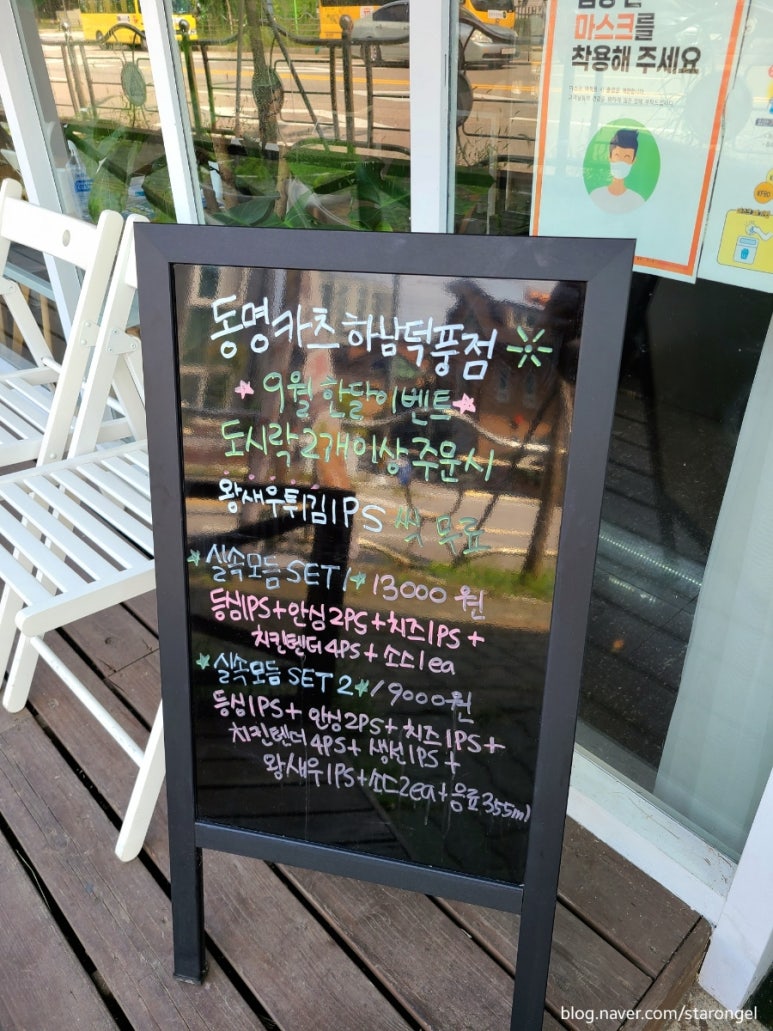 마스크를
착용해 주세요
동명카츠 하남덕풍점
9월 한달 이벤트
도시락 2개이상 주문시
왕새우튀김 1PS 씩 무료
실속모듬 SET 1 13000 원
등심1PS + 안심 2PS + 치즈 1PS +
치킨텐더 4PS + 소스 1ea
실속모듬 SET 2 19000원
등심1PS + 안심2PS + 치즈 1PS +
치킨텐더 4PS + 생선 1PS +
왕새우 1PS + 소스 2ea + 음료 355ml
blog.naver.com/starongel